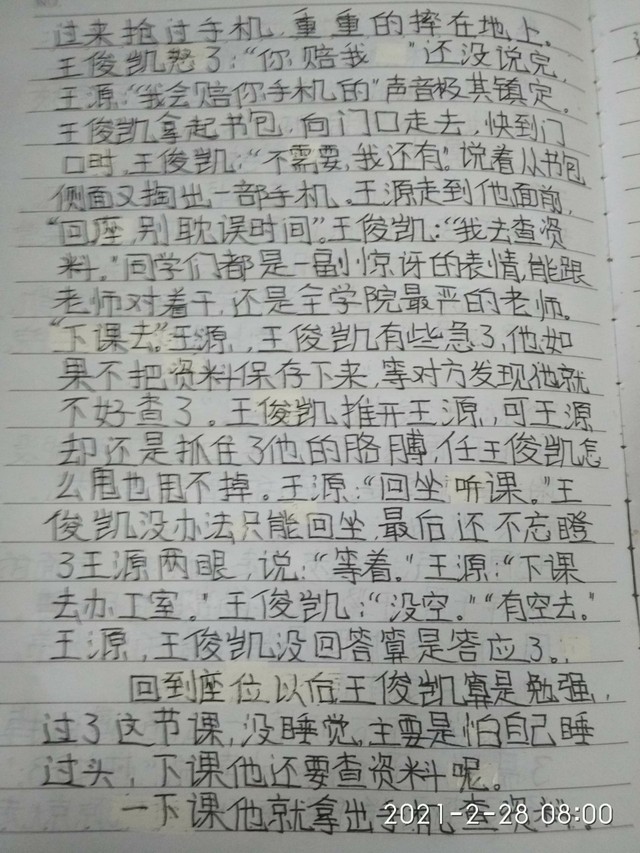 过来抢过手机，重重的摔在地上。
王俊凯怒了："你赔我    "还没说完，
王源："我会赔你手机的"声音极其镇定。
王俊凯拿起书包，向门口走去，快到门
口时，王俊凯："不需要，我还有。"说着从书包
侧面又掏出一部手机。王源走到他面前，
"回座，别耽误时间"。王俊凯："我去查资
料。"同学们都是一副惊讶的表情，能跟
老师对着干，还是全学院最严的老师。
"下课去。"王源，，王俊凯有些急了，他如
果不把资料保存下来，等对方发现他就
不好查了。王俊凯推开王源，可王源
却还是抓住了他的胳膊，任王俊凯怎
么甩也甩不掉。王源："回坐听课。"王
俊凯没办法只能回坐，最后还不忘瞪
了王源两眼，说："等着。"王源："下课
去办工室。"王俊凯："没空。""有空去。"
王源，王俊凯没回答算是答应了。，
回到座位以后王俊凯算是勉强，
过了这节课，没睡觉，主要是怕自己睡
过头，下课他还要查资料呢。
一下课他就拿出手机查资料。
2021-2-28 08:00